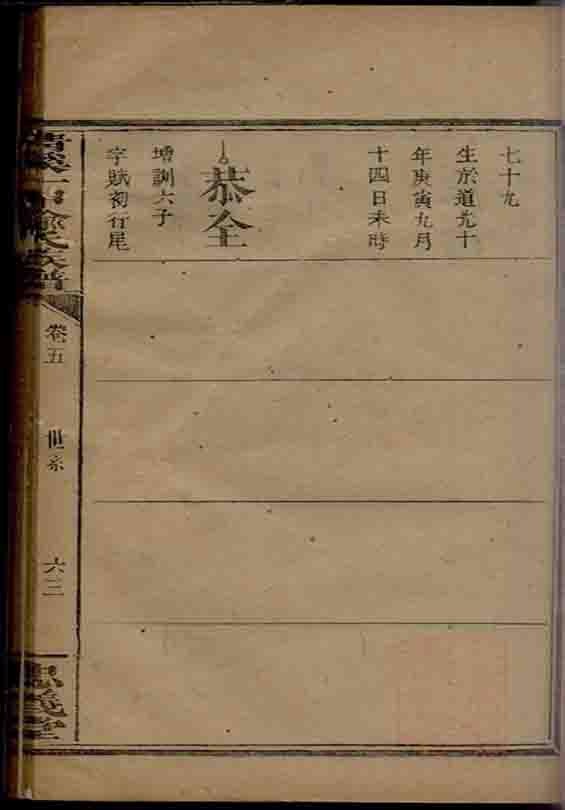 七十九
生於道光十
年庚寅九月
十四日未時
恭全
增訓六子
字賦初行尾
氏族譜
卷五
世系
六三
忠義堂